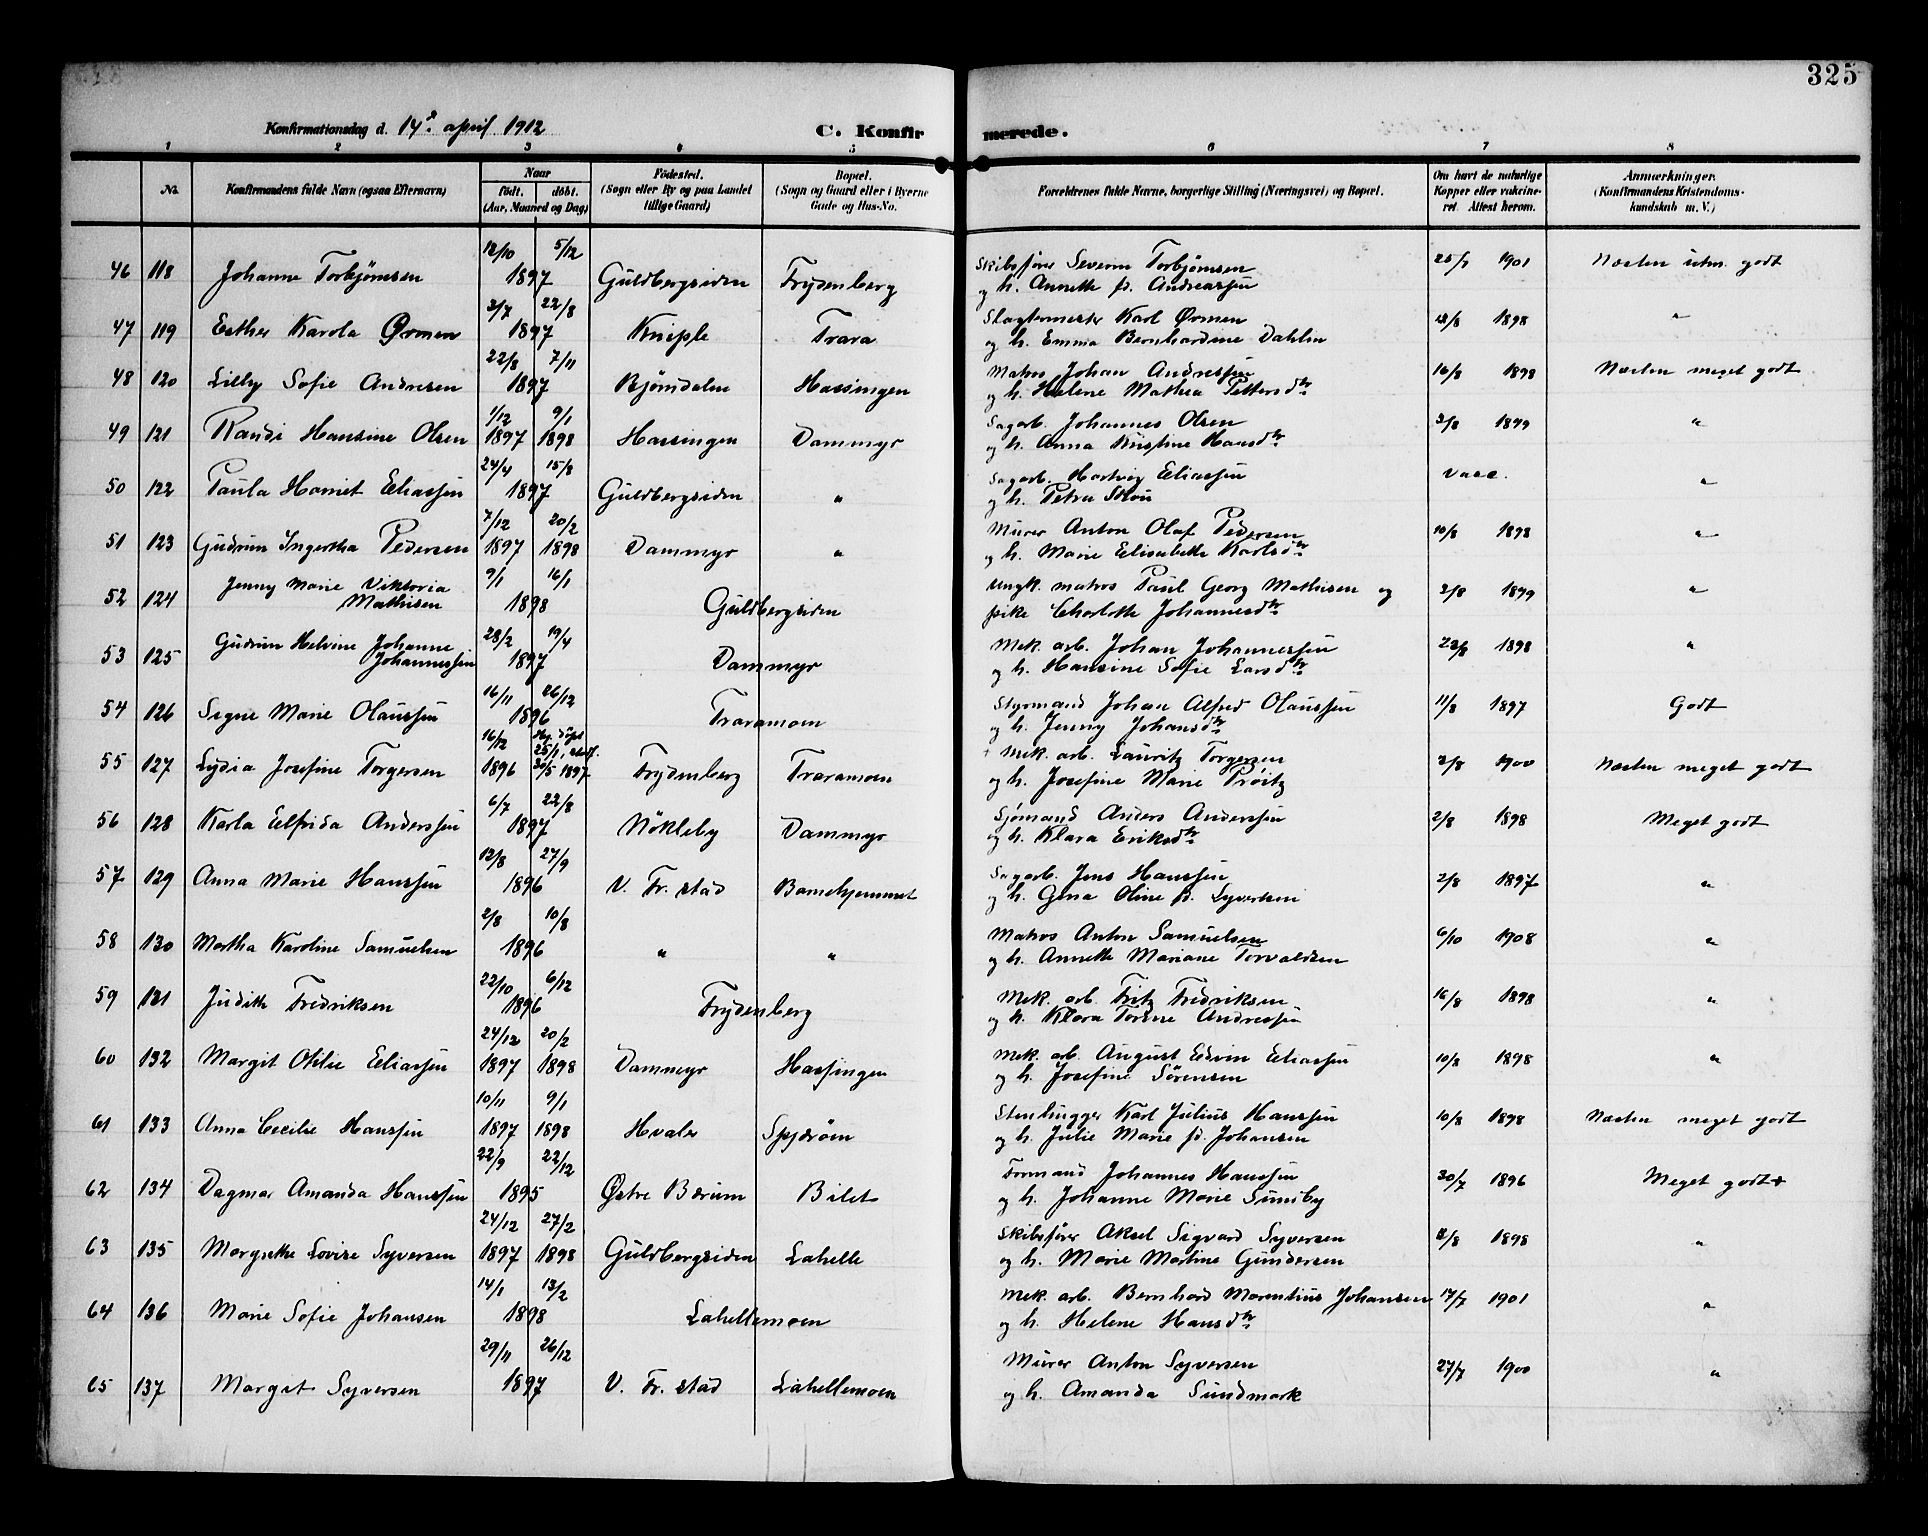 325
Konfirmationsdag d. 14de april 1912
C. Konfirmerede.
1 2 3 4 5 6 7 8
No. Konfirmandens fulde Navn (ogsaa Efternavn) Naar födt. döbt. (Aar, Maaned og Dag) Födested. (Sogn eller By og paa Landet tillige Gaard) Bopæl. (Sogn og Gaard eller i Byerne Gade og Hus-No. Forældrenes fulde Navne, borgerlige Stilling (Næringsvei) og Bopæl. Om havt de naturlige Kopper eller vakcineret. Attest herom. Anmærkninger. (Konfirmandens Kristendomskundskab m. V.)
46 118 Johanne Torbjørnsen 12/10 5/12 1897 Guldbergsiden Frydenberg Skibsfører Severin Torbjørnsen 25/7 1901 Næsten utm. godt
og h. Annette f. Andreassen
47 119 Esther Karola Ørmen 3/7 22/8 1897 Kniple Trara Slagtermester Karl Ørmen 1898 "
og h. Emma Bernhardine Dahlin
48 120 Lilly Sofie Andresen 22/8 7/11 1897 Bjørndalen Hassingen Matros Johan Andressen 16/8 1898 Næsten meget godt
og h. Helene Mathea Pettersdtr
49 121 Randi Hansine Olsen 1/12 1897 9/1 1898 Hassingen Dammyr Sagarb. Johannes Olsen 2/8 1899 "
og h. Anna Kristine Hansdtr
50 122 Paula Harriet Eliassen 24/4 15/8 1897 Guldbergsiden " Sagarb. Hartvig Eliassen Vacc. "
og h. Petra
51 123 Gudrun Ingertha Pedersen 7/12 1897 20/2 1898 Dammyr " Murer Anton Olaf Pedersen 10/8 1898 "
og h. Marie Elisabeth Karlsdtr
52 124 Jenny Marie Viktoria Mathisen 9/1 16/1 1898 Guldbergsiden Ungk. matros Paul Georg Mathisen og 2/8 1899 "
pike Charlotte Johannesdtr
53 125 Gudrun Helvine Johanne Johannessen 28/2 19/4 1897 Dammyr Mek. arb. Johan Johannessen 22/8 1898 "
og h. Hansine Sofie Larsdtr
54 126 Signe Marie Olaussen 16/11 26/12 1896 Traramoen Styrmand Johan Alfred Olaussen 11/8 1897 Godt
og h. Jenny Johansdtr
55 127 Lydia Josefine Torgersen 16/12 1896 Hj. döpt 25/1, stadf. 30/5 1897 Frydenberg Traramoen Mek. arb. Lauritz Torgersen 2/8 1900 Næsten meget godt
og h. Josefine Marie Prøitz
56 128 Karla Elfrida Anderssen 6/7 22/8 1897 Nökleby Dammyr Sjømand Anders Anderssen 2/8 1898 Meget godt
og h. Klara Eriksdtr
57 129 Anna Marie Hanssen 12/8 27/9 1896 V. Fr.stad Barnehjemmet Sagarb. Jens Hanssen 2/8 1897 "
og h. Gina Oline f. Syvertsen
58 130 Martha Karoline Samuelsen 2/8 10/8 1896 " " Matros Anton Samuelsen 6/10 1908 "
og h. Annette Mariane Torvaldsen
59 131 Judith Fredriksen 22/10 6/12 1896 Frydenberg Mek. arb. Fritz Fredriksen 16/8 1898 "
og h. Klara Torine Andressen
60 132 Margit Otilie Eliassen 24/12 1897 20/2 1898 Dammyr Hassingen Mek. arb. August Edvin Eliassen 10/8 1898 "
og h. Josefine Sörensen
61 133 Anna Cecilie Hanssen 10/11 1897 9/1 1898 Hvaler Spjærøen Stenhugger Karl Julius Hanssen 10/8 1898 Næsten meget godt
og h. Julie Marie f. Johansen
62 134 Dagmar Amanda Hanssen 22/9 22/12 1895 Østre Bærum Bilet Formand Johannes Hanssen 30/7 1896 Meget godt+
og h. Johanne Marie Sundby
63 135 Margrethe Lovise Syversen 24/12 1897 27/2 1898 Guldbergsiden Lahelle Skibsfører Aksel Sigvard Syversen 1898 "
og h. Marie Martine Gundersen
64 136 Marie Sofie Johansen 14/1 13/2 1898 Lahellemoen Mek. arb. Bernhard Marentius Johansen 17/7 1901 "
og h. Helene Hansdtr
65 137 Margit Syversen 29/11 26/12 1897 V. Fr.stad Lahellemoen Murer Anton Syversen 27/7 1900 "
og h. Amanda Sundmark